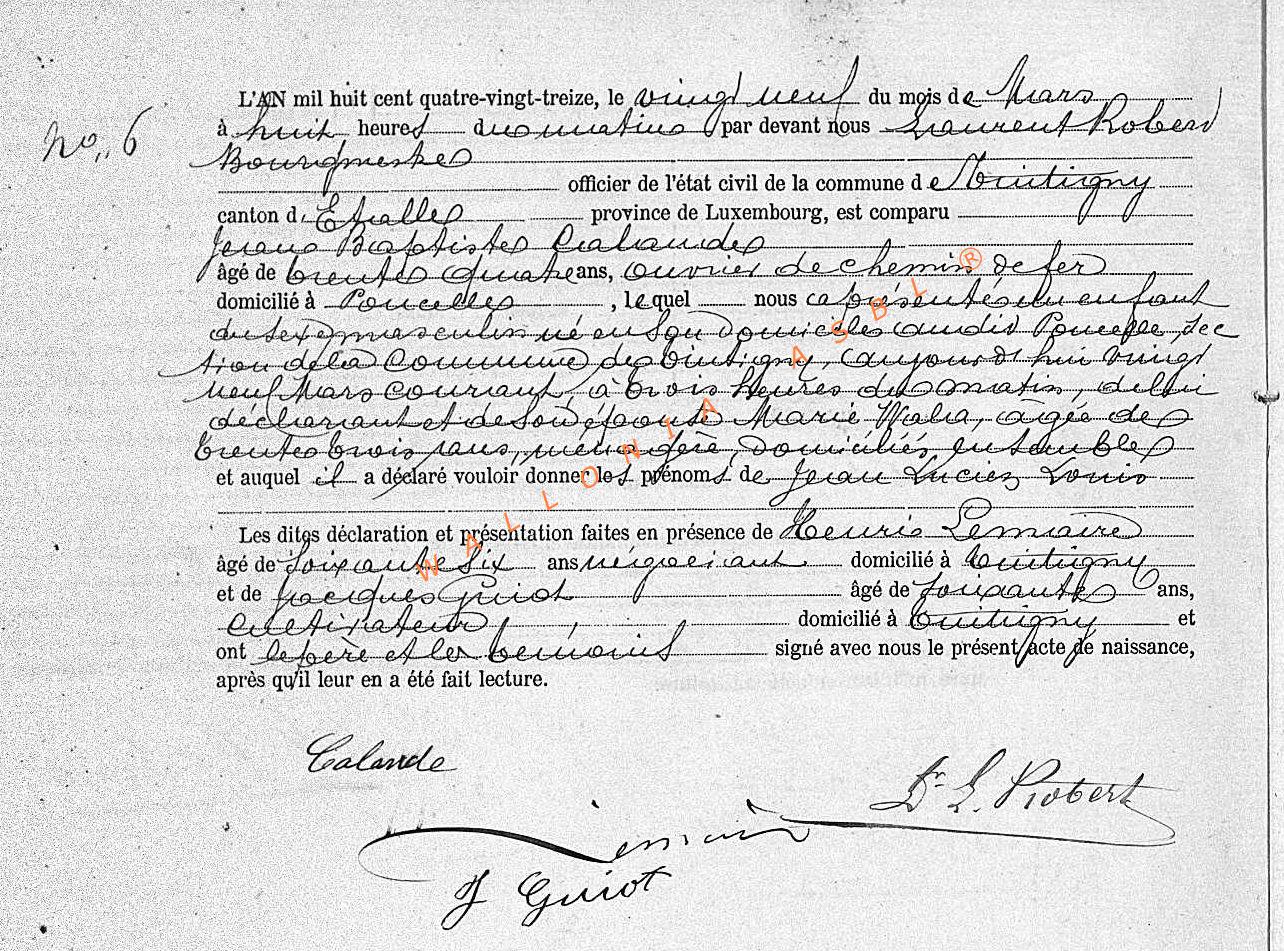 No. 6
L'AN mil huit cent quatre-vingt-treize, le vingt neuf du mois de Mars
à huit heures du matin par devant nous Laurent Robert
Bourgmestre
officier de l'état civil de la commune de Tintigny
canton d'Etalle province de Luxembourg, est comparu
Jean Baptiste Calande
âgé de trente quatre ans, ouvrier de chemin de fer
domicilié à Poncelle, lequel nous a présenté un enfant
du sexe masculin né en son domicile audit Poncelle, sec
tion de la commune de Tintigny, aujourd'hui vingt
neuf Mars courant, à trois heures du matin, de lui
déclarant et de son épouse Marie Walia, âgée de
trente trois ans, ménagère, domiciliés ensemble
et auquel il a déclaré vouloir donner les prénoms de Jean Lucien Louis
Les dites déclaration et présentation faites en présence de Henri Lemaire
âgé de Soixante six ans négociant domicilié à Tintigny
et de Jacques Guiot âgé de soixante ans,
Cultivateur, domicilié à Tintigny et
ont le père et les témoins signé avec nous le présent acte de naissance,
après qu'il leur en a été fait lecture.
WALLONIA ASBL ®
Calande
Dr. L. Robert
Lemaire
J Guiot